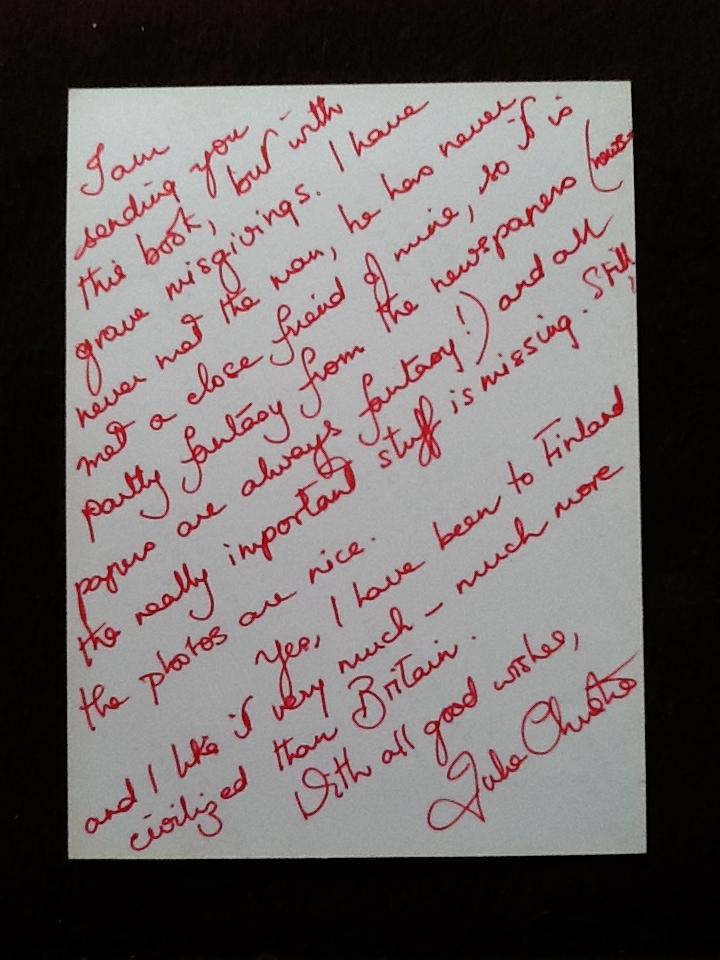 I am
sending you
this book, but with
grave misgivings. I have
never met the man, he has never
met a close friend of mine, so it is
partly fantasy from the newspapers (news-
papers are always fantasy!) and all
the really important stuff is missing. Still,
the photos are nice.
Yes, I have been to Finland
and I like it very much – much more
civilized than Britain.
With all good wishes,
Julie Christie